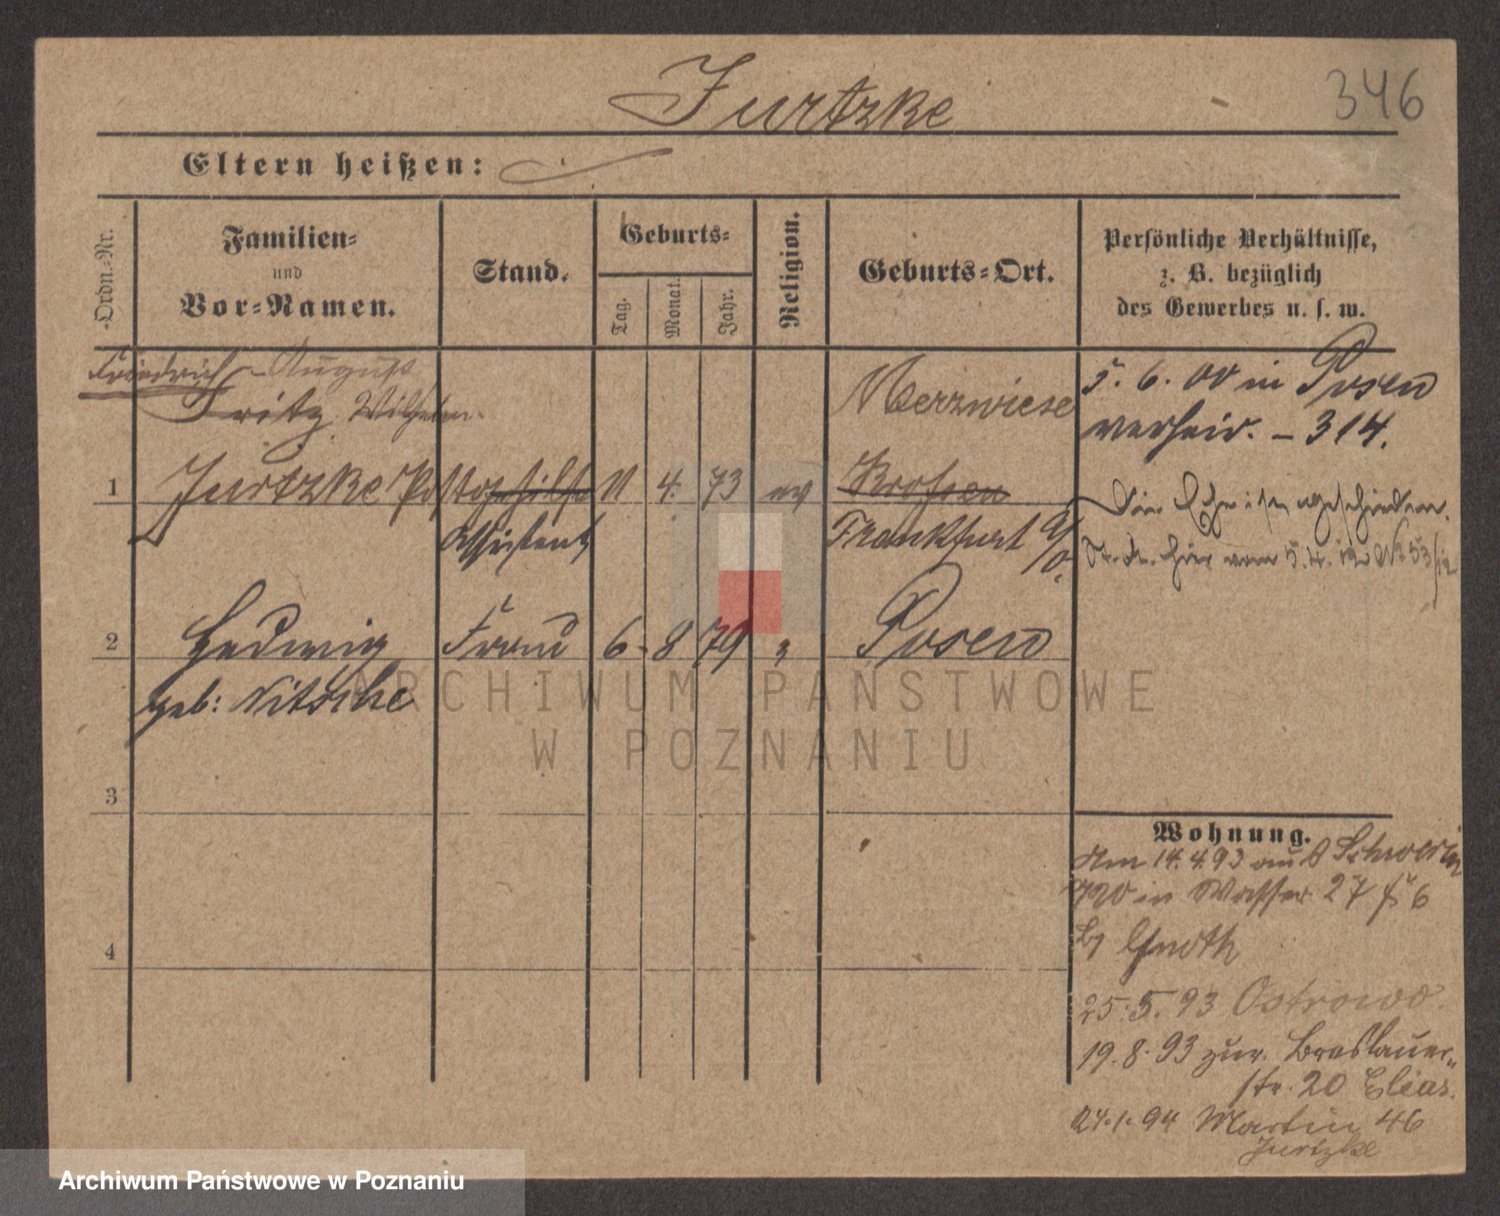 Jurtzke
346
Eltern heißen:
Ordn.-Nr.
Familien-
und
Vor-Namen.
Stand.
Geburts-
Tag.
Monat.
Jahr.
Religion.
Geburts-Ort.
Persönliche Verhältnisse,
z. B. bezüglich
des Gewerbes u. s. w.
Friedrich August
Fritz Wilhelm.
Merzwiese
5. 6. 00 in Posen
verheir. - 314.
1 Jurtzke Postgehilfe 11 4. 73 ev Krossen
Assistent Frankfurt a/O.
Die Ehe ist geschieden.
St. A. hier vom 5.4.12 No 53/12
2 Hedwig Frau 6. 8 79 " Posen
geb: Nitsche
ARCHIWUM PAŃSTWOWE
W POZNANIU
3
Wohnung.
Am 14.4.93 aus Schwerin
in Wasser 27
4
25.5.93 Ostrowo.
19.8.93 zur. Breslauer-
str. 20 Elias.
24.1.94 Martin 46
Jurtzke
Archiwum Państwowe w Poznaniu